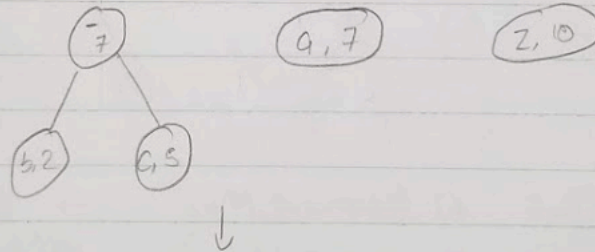 - 7
a, 7
z, 10
b, 2
c, 5